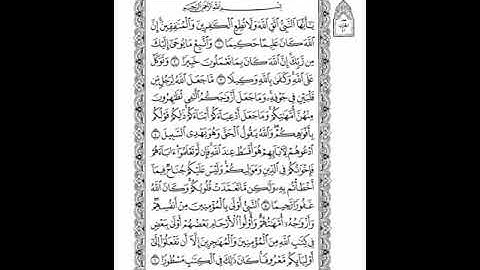 بِسْمِ اللَّهِ الرَّحْمَٰنِ الرَّحِيمِ
يَا أَيُّهَا النَّبِيُّ اتَّقِ اللَّهَ وَلَا تُطِعِ الْكَافِرِينَ وَالْمُنَافِقِينَ إِنَّ
اللَّهَ كَانَ عَلِيمًا حَكِيمًا ١ وَاتَّبِعْ مَا يُوحَىٰ إِلَيْكَ
مِن رَّبِّكَ إِنَّ اللَّهَ كَانَ بِمَا تَعْمَلُونَ خَبِيرًا ٢ وَتَوَكَّلْ
عَلَى اللَّهِ وَكَفَىٰ بِاللَّهِ وَكِيلًا ٣ مَّا جَعَلَ اللَّهُ لِرَجُلٍ مِّن
قَلْبَيْنِ فِي جَوْفِهِ وَمَا جَعَلَ أَزْوَاجَكُمُ اللَّائِي تُظَاهِرُونَ
مِنْهُنَّ أُمَّهَاتِكُمْ وَمَا جَعَلَ أَدْعِيَاءَكُمْ أَبْنَاءَكُمْ ذَٰلِكُمْ قَوْلُكُم
بِأَفْوَاهِكُمْ وَاللَّهُ يَقُولُ الْحَقَّ وَهُوَ يَهْدِي السَّبِيلَ ٤
ادْعُوهُمْ لِآبَائِهِمْ هُوَ أَقْسَطُ عِندَ اللَّهِ فَإِن لَّمْ تَعْلَمُوا آبَاءَهُمْ
فَإِخْوَانُكُمْ فِي الدِّينِ وَمَوَالِيكُمْ وَلَيْسَ عَلَيْكُمْ جُنَاحٌ فِيمَا
أَخْطَأْتُم بِهِ وَلَٰكِن مَّا تَعَمَّدَتْ قُلُوبُكُمْ وَكَانَ اللَّهُ
غَفُورًا رَّحِيمًا ٥ النَّبِيُّ أَوْلَىٰ بِالْمُؤْمِنِينَ مِنْ أَنفُسِهِمْ
وَأَزْوَاجُهُ أُمَّهَاتُهُمْ وَأُولُو الْأَرْحَامِ بَعْضُهُمْ أَوْلَىٰ بِبَعْضٍ
فِي كِتَابِ اللَّهِ مِنَ الْمُؤْمِنِينَ وَالْمُهَاجِرِينَ إِلَّا أَن تَفْعَلُوا إِلَىٰ
أَوْلِيَائِكُم مَّعْرُوفًا كَانَ ذَٰلِكَ فِي الْكِتَابِ مَسْطُورًا ٦